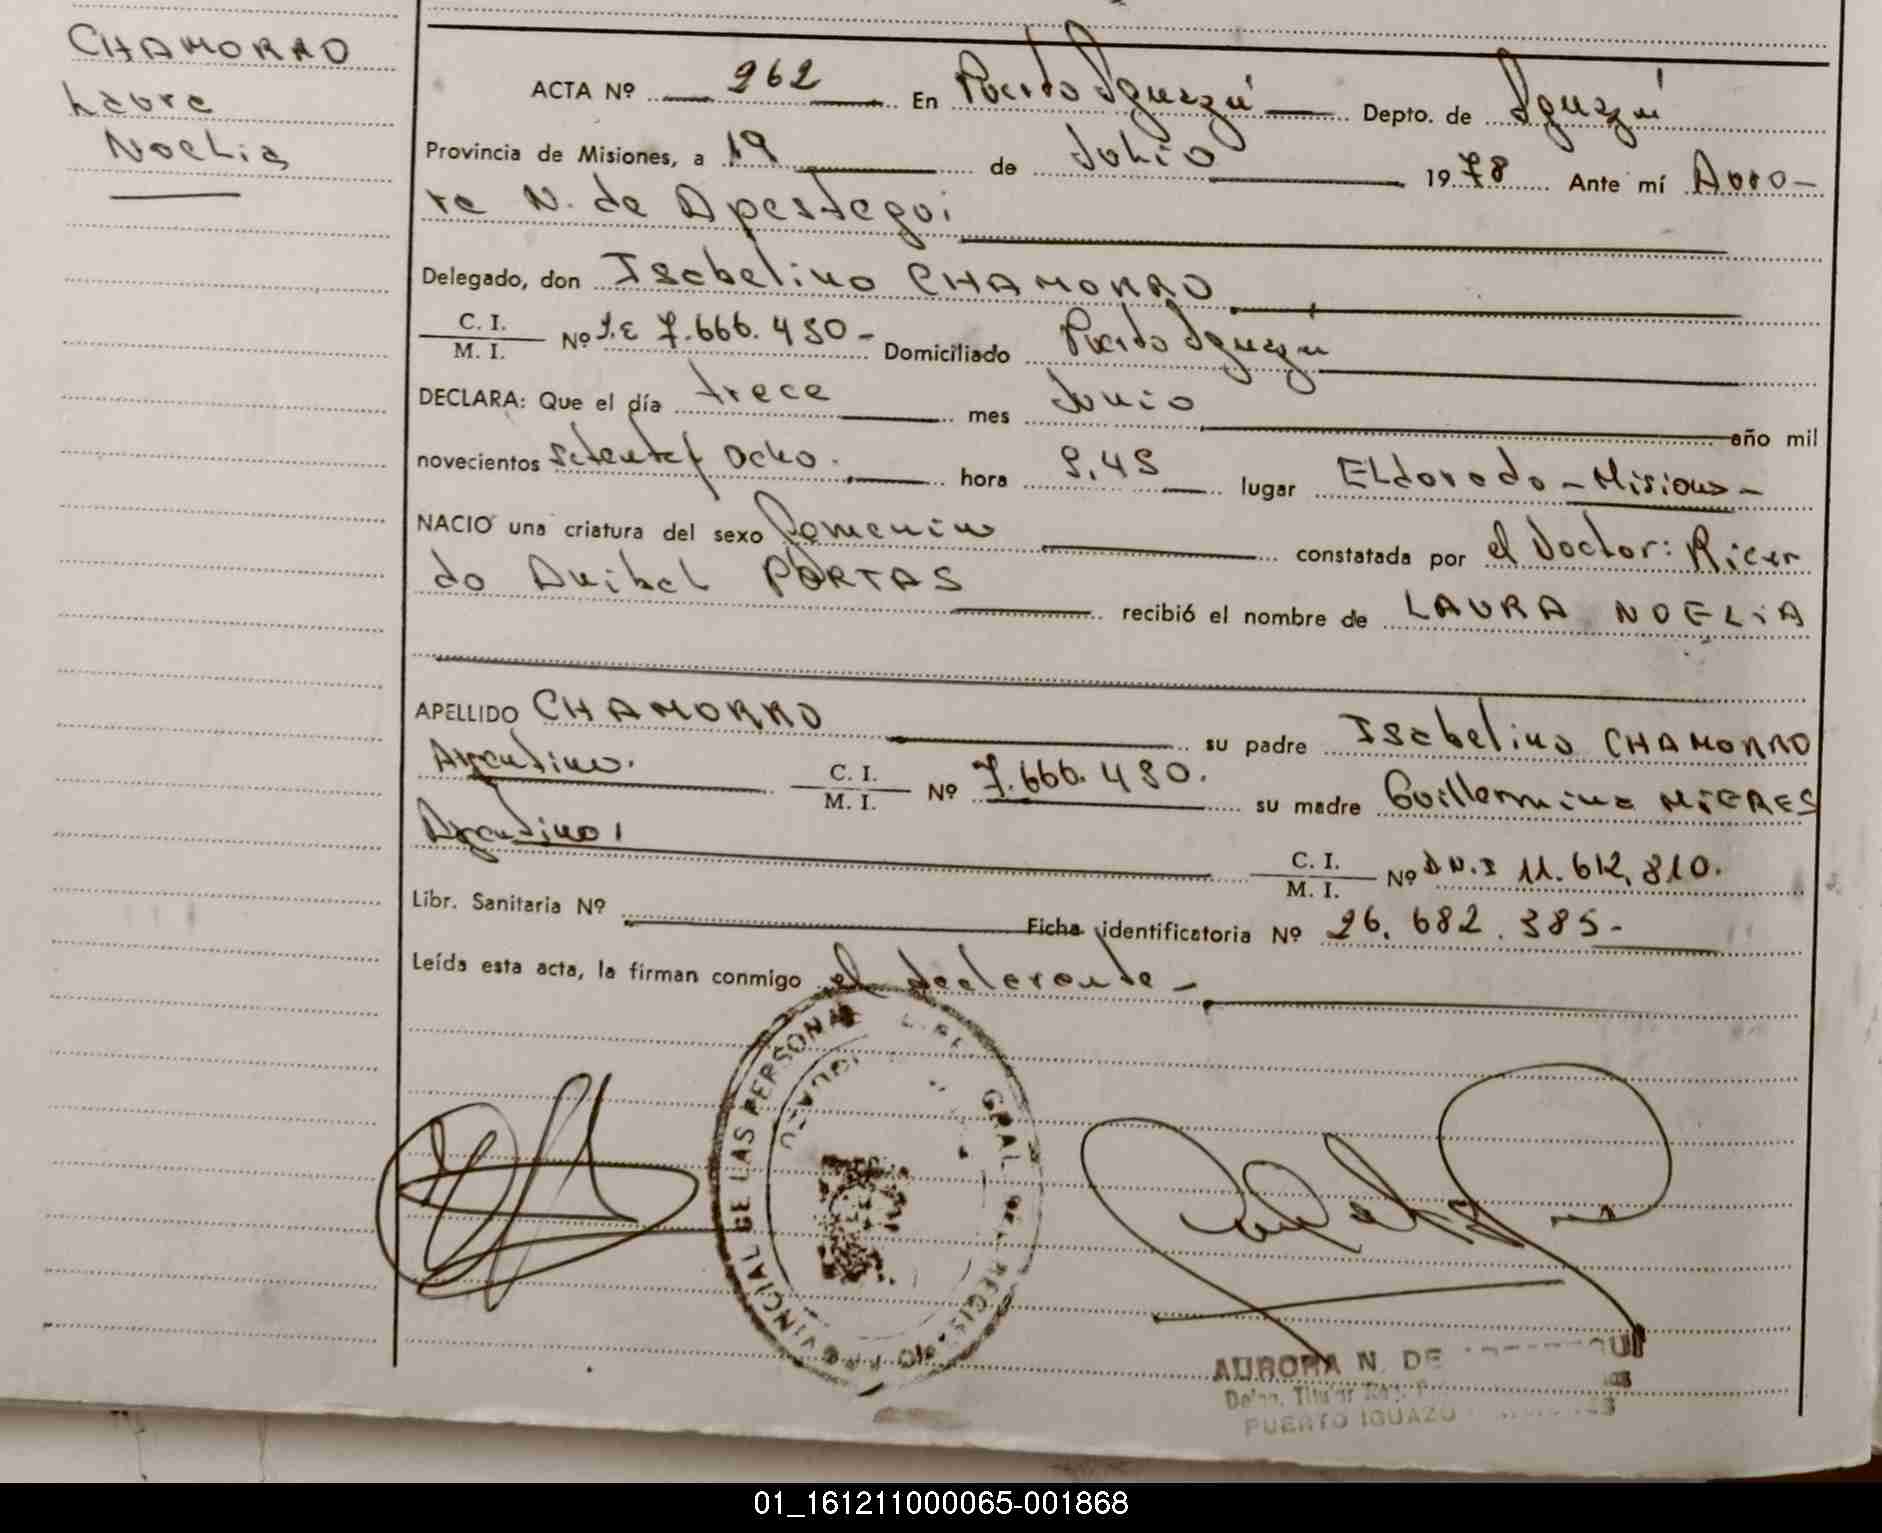 CHAMORRO
Laura
Noelia
ACTA Nº 262 En Puerto Iguazú Depto. de Iguazú
Provincia de Misiones, a 19 de Julio 1978 Ante mí Auro-
ra N. de Apestegui
Delegado, don Isabelino CHAMORRO
C. I.
M. I. Nº L.E 7.666.450- Domiciliado Puerto Iguazu
DECLARA: Que el día trece mes Junio año mil
novecientos setenta y ocho. hora 9,45 lugar ELdorado - Misiones -
NACIO una criatura del sexo Femenino constatada por el Doctor: Ricar
do Anibal PORTAS recibió el nombre de LAURA NOELIA
APELLIDO CHAMORRO su padre Isabelino CHAMORRO
Argentino. C. I.
M. I. Nº 7.666.450. su madre Guillermina MIERES
Argentina C. I.
M. I. Nº D N.I 11.612.810.
Libr. Sanitaria Nº Ficha identificatoria Nº 26.682.385-
Leída esta acta, la firman conmigo el declarante -
GRAL DEL REGISTRO PROVINCIAL DE LAS PERSONAS
IGUAZU
AURORA N. DE
PUERTO IGUAZU
01_161211000065-001868